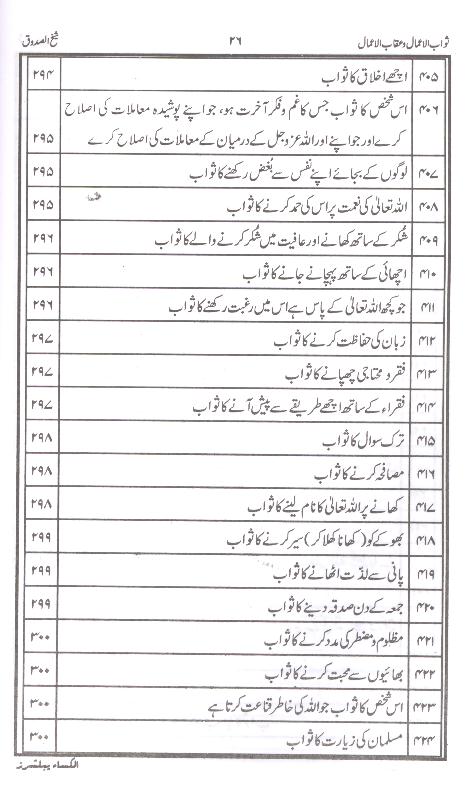 ثواب الاعمال و عقاب الاعمال ۲۶ شیخ الصدوق
۴۰۵ اچھے اخلاق کا ثواب ۲۹۴
۴۰۶ اس شخص کا ثواب جس کا غم و فکر آخرت ہو، جو اپنے پوشیدہ معاملات کی اصلاح
کرے اور جو اپنے اور اللہ عزوجل کے درمیان کے معاملات کی اصلاح کرے ۲۹۵
۴۰۷ لوگوں کے بجائے اپنے نفس سے بُغض رکھنے کا ثواب ۲۹۵
۴۰۸ اللہ تعالیٰ کی نعمت پر اس کی حمد کرنے کا ثواب ۲۹۵
۴۰۹ شُکر کے ساتھ کھانے اور عافیت میں شُکر کرنے والے کا ثواب ۲۹۶
۴۱۰ اچھائی کے ساتھ پہچانے جانے کا ثواب ۲۹۶
۴۱۱ جو کچھ اللہ تعالیٰ کے پاس ہے اس میں رغبت رکھنے کا ثواب ۲۹۶
۴۱۲ زبان کی حفاظت کرنے کا ثواب ۲۹۷
۴۱۳ فقر و محتاجی چھپانے کا ثواب ۲۹۷
۴۱۴ فقراء کے ساتھ اچھے طریقے سے پیش آنے کا ثواب ۲۹۷
۴۱۵ ترک سوال کا ثواب ۲۹۸
۴۱۶ مصافحہ کرنے کا ثواب ۲۹۸
۴۱۷ کھانے پر اللہ تعالیٰ کا نام لینے کا ثواب ۲۹۸
۴۱۸ بھوکے کو (کھانا کھلا کر) سیر کرنے کا ثواب ۲۹۹
۴۱۹ پانی سے لذّت اٹھانے کا ثواب ۲۹۹
۴۲۰ جمعہ کے دن صدقہ دینے کا ثواب ۲۹۹
۴۲۱ مظلوم و مضطر کی مدد کرنے کا ثواب ۳۰۰
۴۲۲ بھائیوں سے محبت کرنے کا ثواب ۳۰۰
۴۲۳ اس شخص کا ثواب جو اللہ کی خاطر قناعت کرتا ہے ۳۰۰
۴۲۴ مسلمان کی زیارت کا ثواب ۳۰۰
الکساء پبلشرز